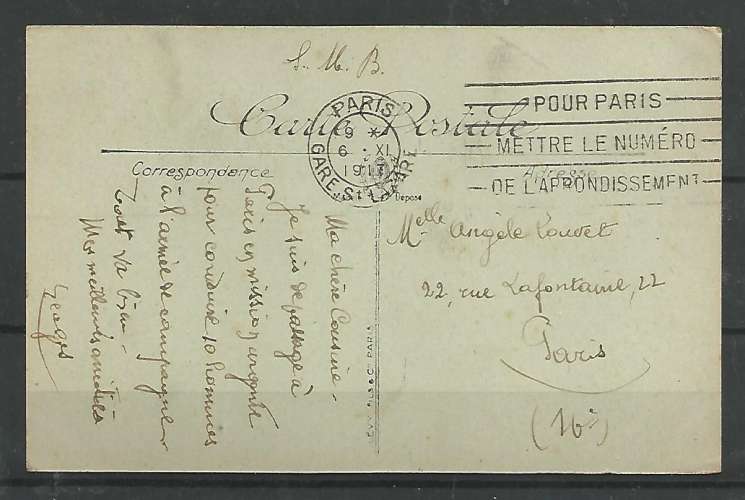 S. M. B.
Carte Postale
PARIS
9 *
6 · XI
GARE St LAZARE
POUR PARIS
METTRE LE NUMÉRO
DE L'ARRONDISSEMENT
Correspondance
Adresse
Déposé
Ma chère Cousine -
Je suis de passage à
Paris en mission urgente
pour conduire 10 hommes
à l'armée de campagne
Tout va bien -
Mes meilleures amitiés
Georges
Melle Angèle Louvet
22, rue Lafontaine, 22
Paris
(16e)
PARIS